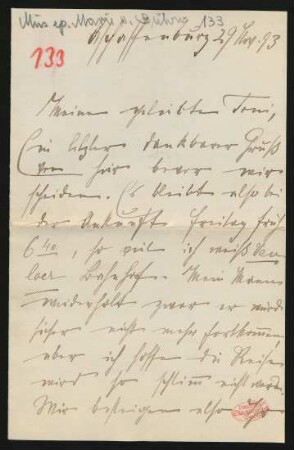 133
133
Aschaffenburg 29 Nov. 93
Meine geliebten Toni,
Ein letzter dankbarer Gruß
von hier bevor wir
scheiden. Es bleibt also bei
der Ankunft Freitag früh
6 40, so viel ich weiß
Bahnhof. Mein Mann
wiederholt zwar er würde
sicher nicht mehr fortkommen,
aber ich hoffe die Reise
wird so schlimm nicht werden.
Wir besteigen also